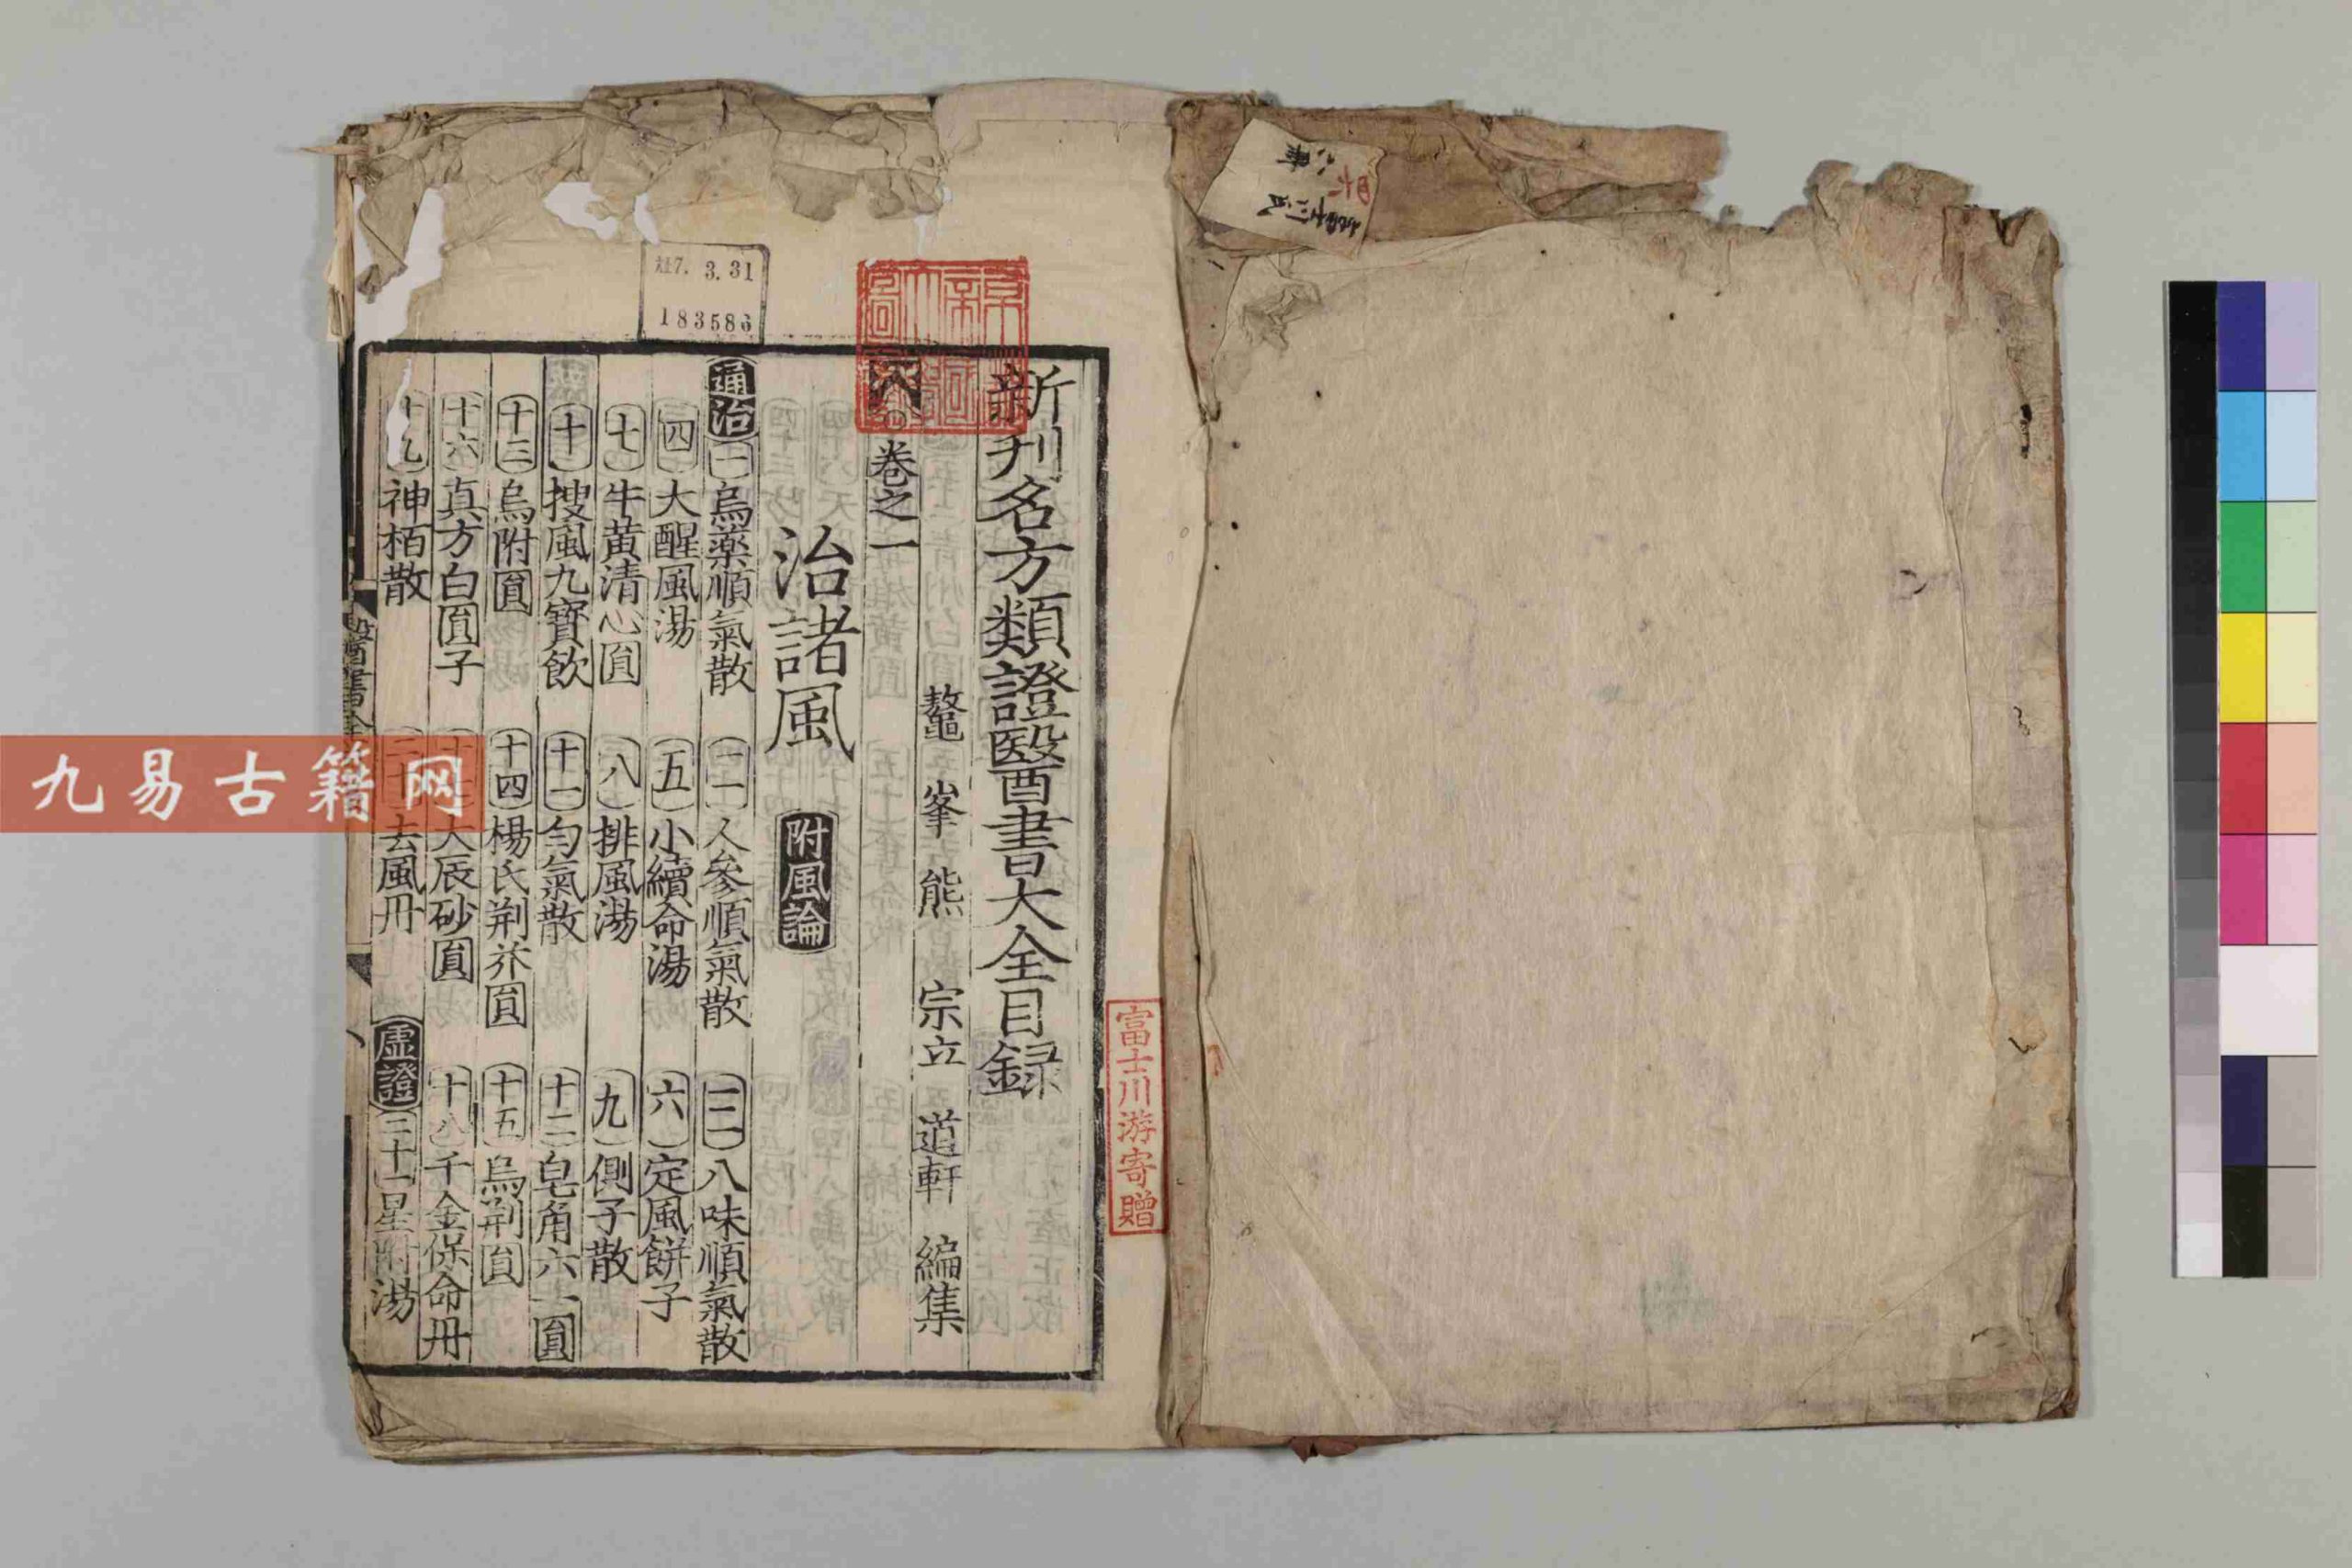 新刊名方類證醫書大全目録
鰲峯熊宗立道軒編集
卷之一
治諸風 附風論
通治 一 烏藥順氣散 二 人參順氣散 三 八味順氣散
四 大醒風湯 五 小續命湯 六 定風餅子
七 牛黄清心圓 八 排風湯 九 側子散
十 搜風九寶飲 十一 勻氣散 十二 皂角六一圓
十三 烏附圓 十四 楊氏荆芥圓 十五 烏荆圓
十六 真方白圓子 大辰砂圓 十八 千金保命丹
十九 神栢散 二十 去風丹 虛證 二十一 星附湯
富士川游寄贈
7. 3. 31
183586
富士川氏
九易古籍网